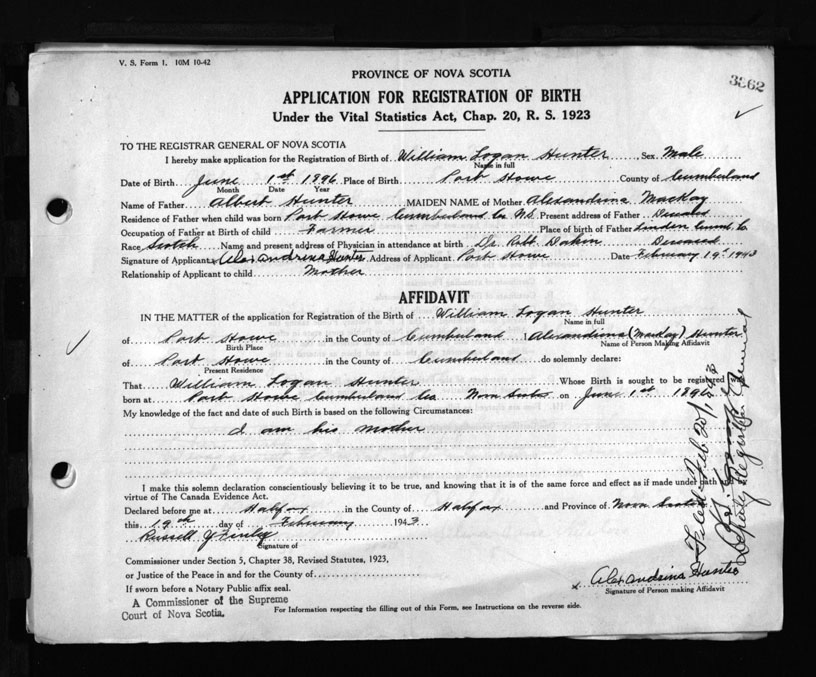 V. S. Form 1. 10M 10-42
3862
PROVINCE OF NOVA SCOTIA
APPLICATION FOR REGISTRATION OF BIRTH
Under the Vital Statistics Act, Chap. 20, R. S. 1923
TO THE REGISTRAR GENERAL OF NOVA SCOTIA
I hereby make application for the Registration of Birth of William Logan Hunter Sex Male
Name in full
Date of Birth June 1st 1896 Place of Birth Port Howe County of Cumberland
Month Date Year
Name of Father Albert Hunter MAIDEN NAME of Mother Alexandrina MacKay
Residence of Father when child was born Port Howe Cumberland Co N.S. Present address of Father Deceased
Occupation of Father at Birth of child Farmer Place of birth of Father Linden Cumb. Co
Race Scotch Name and present address of Physician in attendance at birth Dr. Robt Dakin Deceased
Signature of Applicant x Alexandrina Hunter Address of Applicant Port Howe Date February 19th 1943
Relationship of Applicant to child Mother
AFFIDAVIT
IN THE MATTER of the application for Registration of the Birth of William Logan Hunter
Name in full
of Port Howe in the County of Cumberland Alexandrina (MacKay) Hunter
Birth Place Name of Person Making Affidavit
of Port Howe in the County of Cumberland do solemnly declare:
Present Residence
That William Logan Hunter Whose Birth is sought to be registered
born at Port Howe Cumberland Co Nova Scotia on June 1st 1896
My knowledge of the fact and date of such Birth is based on the following Circumstances:
I am his Mother
I make this solemn declaration conscientiously believing it to be true, and knowing that it is of the same force and effect as if made under oath and
virtue of The Canada Evidence Act.
Declared before me at Halifax in the County of Halifax and Province of Nova Scotia
this 19th day of February 1943
Russell J Finley
Signature of
Commissioner under Section 5, Chapter 38, Revised Statutes, 1923,
or Justice of the Peace in and for the County of
If sworn before a Notary Public affix seal.
A Commissioner of the Supreme
Court of Nova Scotia.
For Information respecting the filling out of this Form, see Instructions on the reverse side.
x Alexandrina Hunter
Signature of Person making Affidavit
Filed Feb 20/1943
Deputy Registrar General